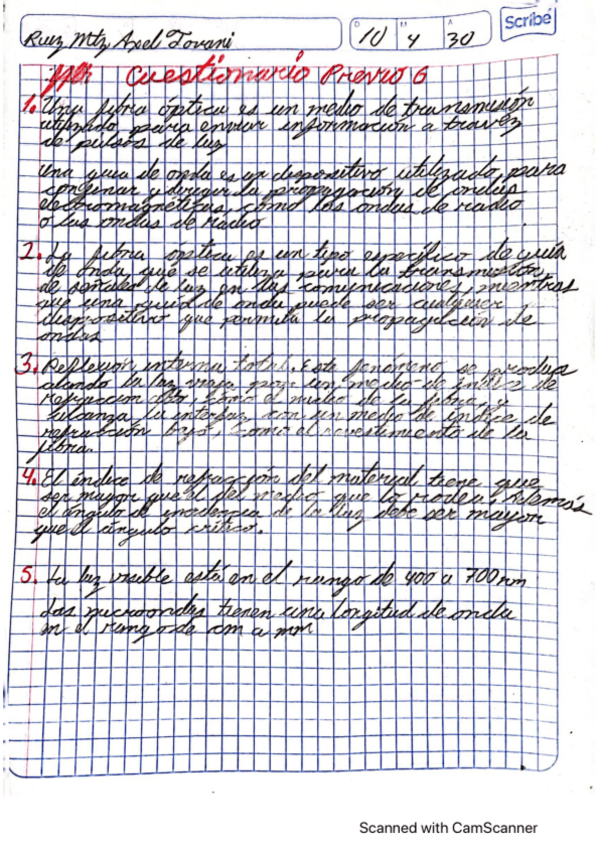 Ruiz Mtz Axel Jovani
D 10 M 4 A 30
Scribe
Cuestionario Previo 6
1. Una fibra óptica es un medio de transmisión
utilizado para enviar información a travez
de pulsos de luz
Una guia de onda es un dispositivo utilizado para
confinar y dirigir la propagación de ondas
electromagnéticas, como las ondas de radio
o las ondas de radio
2. La fibra óptica es un tipo específico de guía
de onda que se utiliza para la transmisión
de señales de luz en las comunicaciones, mientras
que una guía de onda puede ser cualquier
dispositivo que permita la propagación de
ondas
3. Reflexión interna total. Este fenómeno se produce
cuando la luz viaja por un medio de índice de
refracción alto, como el núcleo de la fibra, y
alcanza la interfaz con un medio de índice de
refracción bajo, como el revestimiento de la
fibra.
4. El índice de refracción del material tiene que
ser mayor que el del medio que lo rodea. Además
el ángulo de incidencia de la luz debe ser mayor
que el ángulo crítico.
5. La luz visible está en el rango de 400 a 700 nm
Las microondas tienen una longitud de onda
en el rango de cm a mm
Scanned with CamScanner